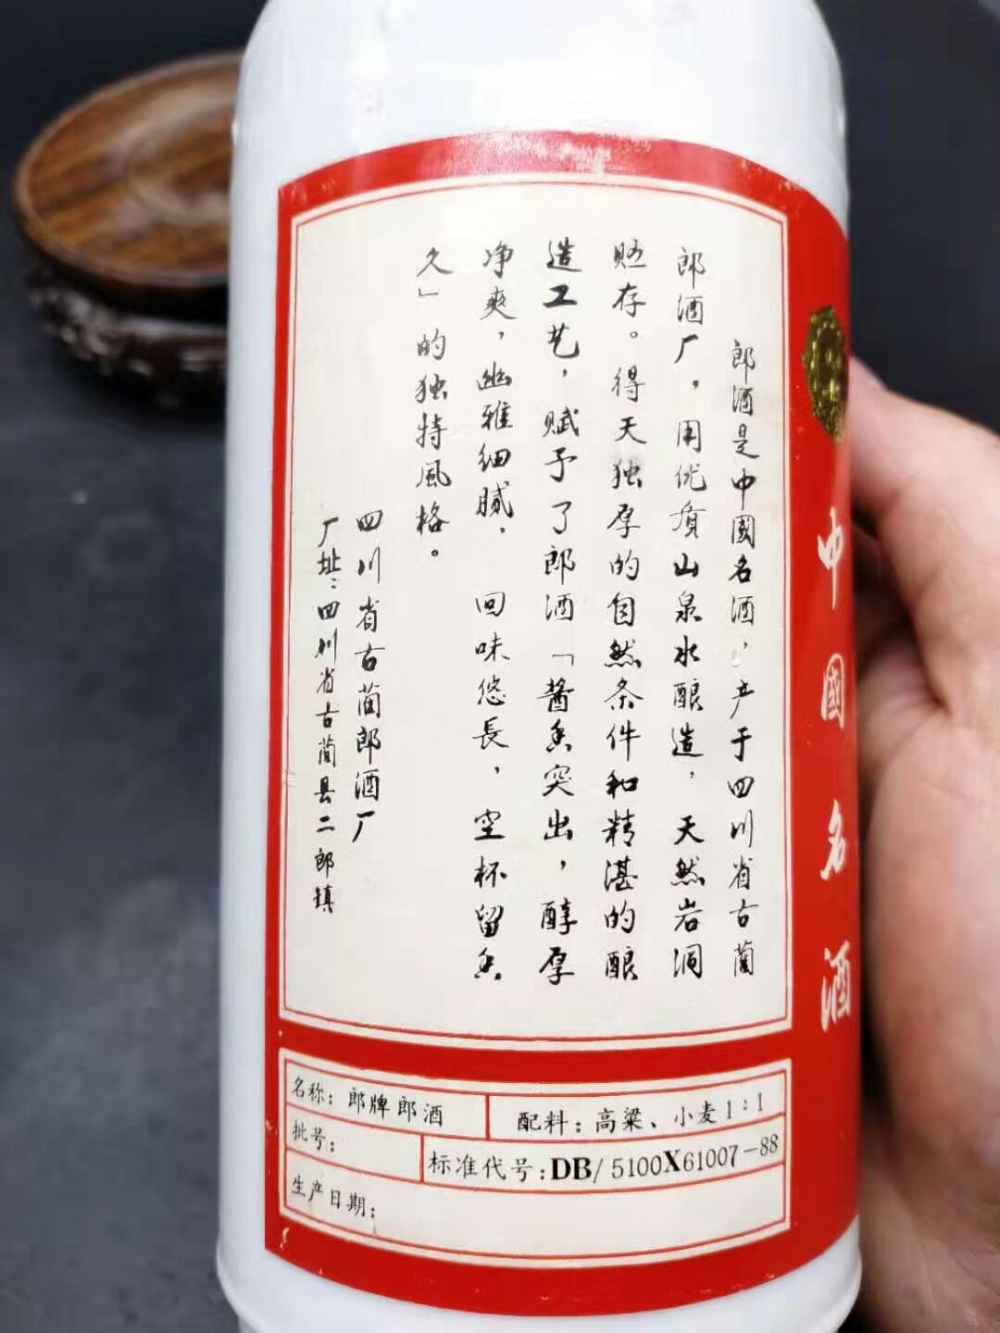 郎酒是中國名酒，产于四川省古蔺
郎酒厂，用优质山泉水酿造，天然岩洞
贮存。得天独厚的自然条件和精湛的酿
造工艺，赋予了郎酒「酱香突出，醇厚
净爽，幽雅细腻，回味悠長，空杯留香
久」的独特風格。
四川省古蔺郎酒厂
厂址：四川省古蔺县二郎镇
中國名酒
名称：郎牌郎酒
配料：高粱、小麦1：1
批号：
标准代号：DB/5100X61007-88
生产日期：